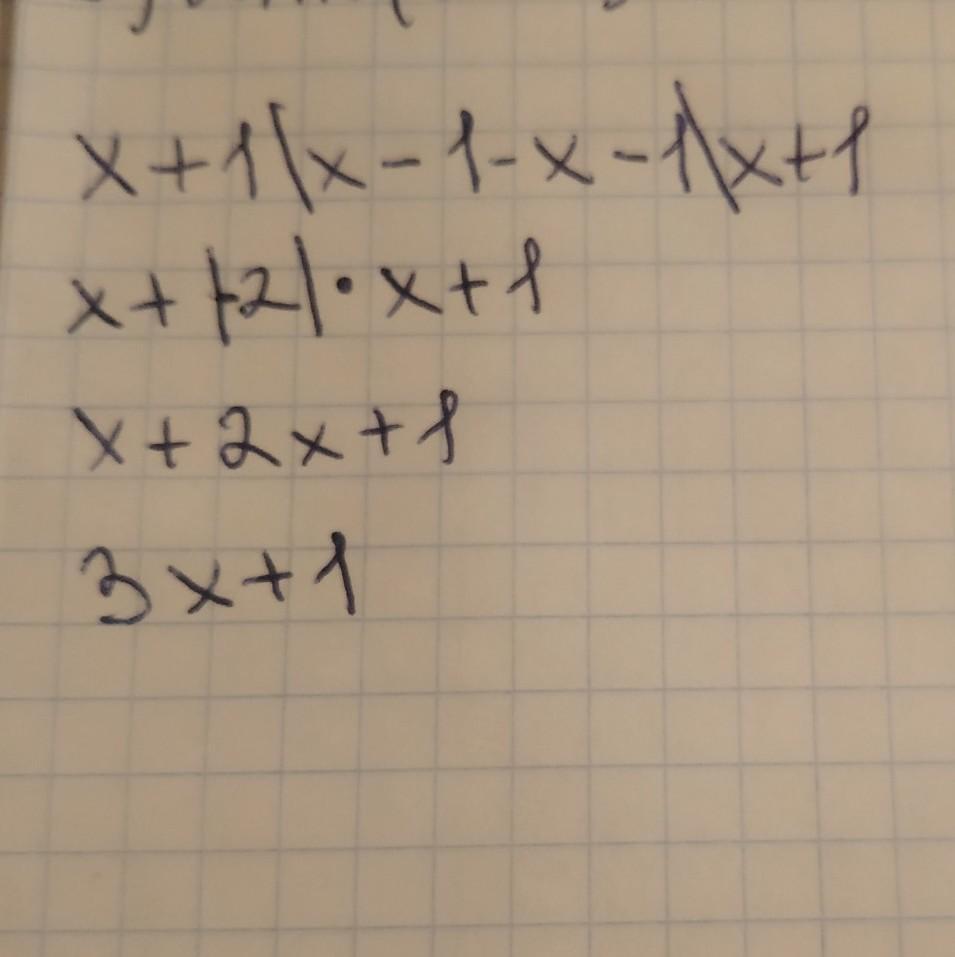 x+1|x-1-x-1|x+1
x+|-2|·x+1
x+2x+1
3x+1